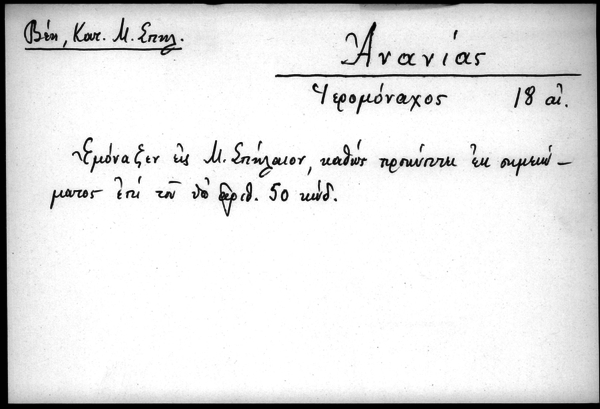 Βέη, Κατ. Μ. Σπηλ.
Ἀνανίας
Ἱερομόναχος 18 αἰ.
Ἐμόναξεν εἰς Μ. Σπήλαιον, καθὼς προκύπτει ἐκ σημειώ-
ματος ἐπὶ τοῦ ὑπ' ἀριθ. 50 κώδ.